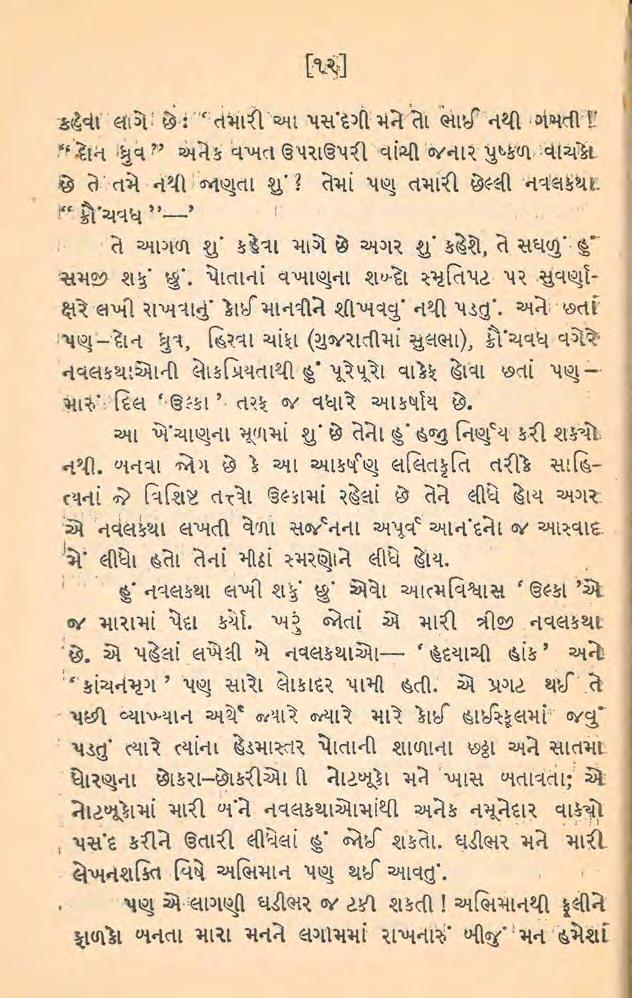 [૧૨]
કહેવા લાગે છે: ‘તમારી આ પસંદગી મને તો ભાઈ નથી ગમતી!
“દોન ધ્રુવ” અનેક વખત ઉપરાઉપરી વાંચી જનાર પુષ્કળ વાચકો
છે તે તમે નથી જાણતા શું? તેમાં પણ તમારી છેલ્લી નવલકથા
“ક્રૌંચવધ”—’
તે આગળ શું કહેવા માગે છે અગર શું કહેશે, તે સઘળું હું
સમજી શકું છું. પોતાનાં વખાણના શબ્દો સ્મૃતિપટ પર સુવર્ણા-
ક્ષરે લખી રાખવાનું કોઈ માનવીને શીખવવું નથી પડતું. અને છતાં
પણ–દોન ધ્રુવ, હિરવા ચાંફા (ગુજરાતીમાં સુલભા), ક્રૌંચવધ વગેરે
નવલકથાઓની લોકપ્રિયતાથી હું પૂરેપૂરો વાકેફ હોવા છતાં પણ–
મારું દિલ ‘ઉલ્કા’ તરફ જ વધારે આકર્ષાય છે.
આ ખેંચાણના મૂળમાં શું છે તેનો હું હજી નિર્ણય કરી શક્યો
નથી. બનવા જોગ છે કે આ આકર્ષણ લલિતકૃતિ તરીકે સાહિ-
ત્યનાં જે વિશિષ્ટ તત્ત્વો ઉલ્કામાં રહેલાં છે તેને લીધે હોય અગર
એ નવલકથા લખતી વેળા સર્જનના અપૂર્વ આનંદનો જ આસ્વાદ
મેં લીધો હતો તેનાં મીઠાં સ્મરણોને લીધે હોય.
હું નવલકથા લખી શકું છું એવો આત્મવિશ્વાસ ‘ઉલ્કા’એ
જ મારામાં પેદા કર્યો. ખરું જોતાં એ મારી ત્રીજી નવલકથા
છે. એ પહેલાં લખેલી બે નવલકથાઓ— ‘હૃદયાચી હાંક’ અને
‘કાંચનમૃગ’ પણ સારો લોકાદર પામી હતી. એ પ્રગટ થઈ તે
પછી વ્યાખ્યાન અર્થે જ્યારે જ્યારે મારે કોઈ હાઈસ્કૂલમાં જવું
પડતું ત્યારે ત્યાંના હેડમાસ્તર પોતાની શાળાના છઠ્ઠા અને સાતમા
ધોરણના છોકરા–છોકરીઓની નોટબૂકો મને ખાસ બતાવતા; એ
નોટબૂકોમાં મારી બંને નવલકથાઓમાંથી અનેક નમૂનેદાર વાક્યો
પસંદ કરીને ઉતારી લીધેલાં હું જોઈ શકતો. ઘડીભર મને મારી
લેખનશક્તિ વિષે અભિમાન પણ થઈ આવતું.
પણ એ લાગણી ઘડીભર જ ટકી શકતી! અભિમાનથી ફૂલીને
ફાળકો બનતા મારા મનને લગામમાં રાખનારું બીજું મન હમેશાં